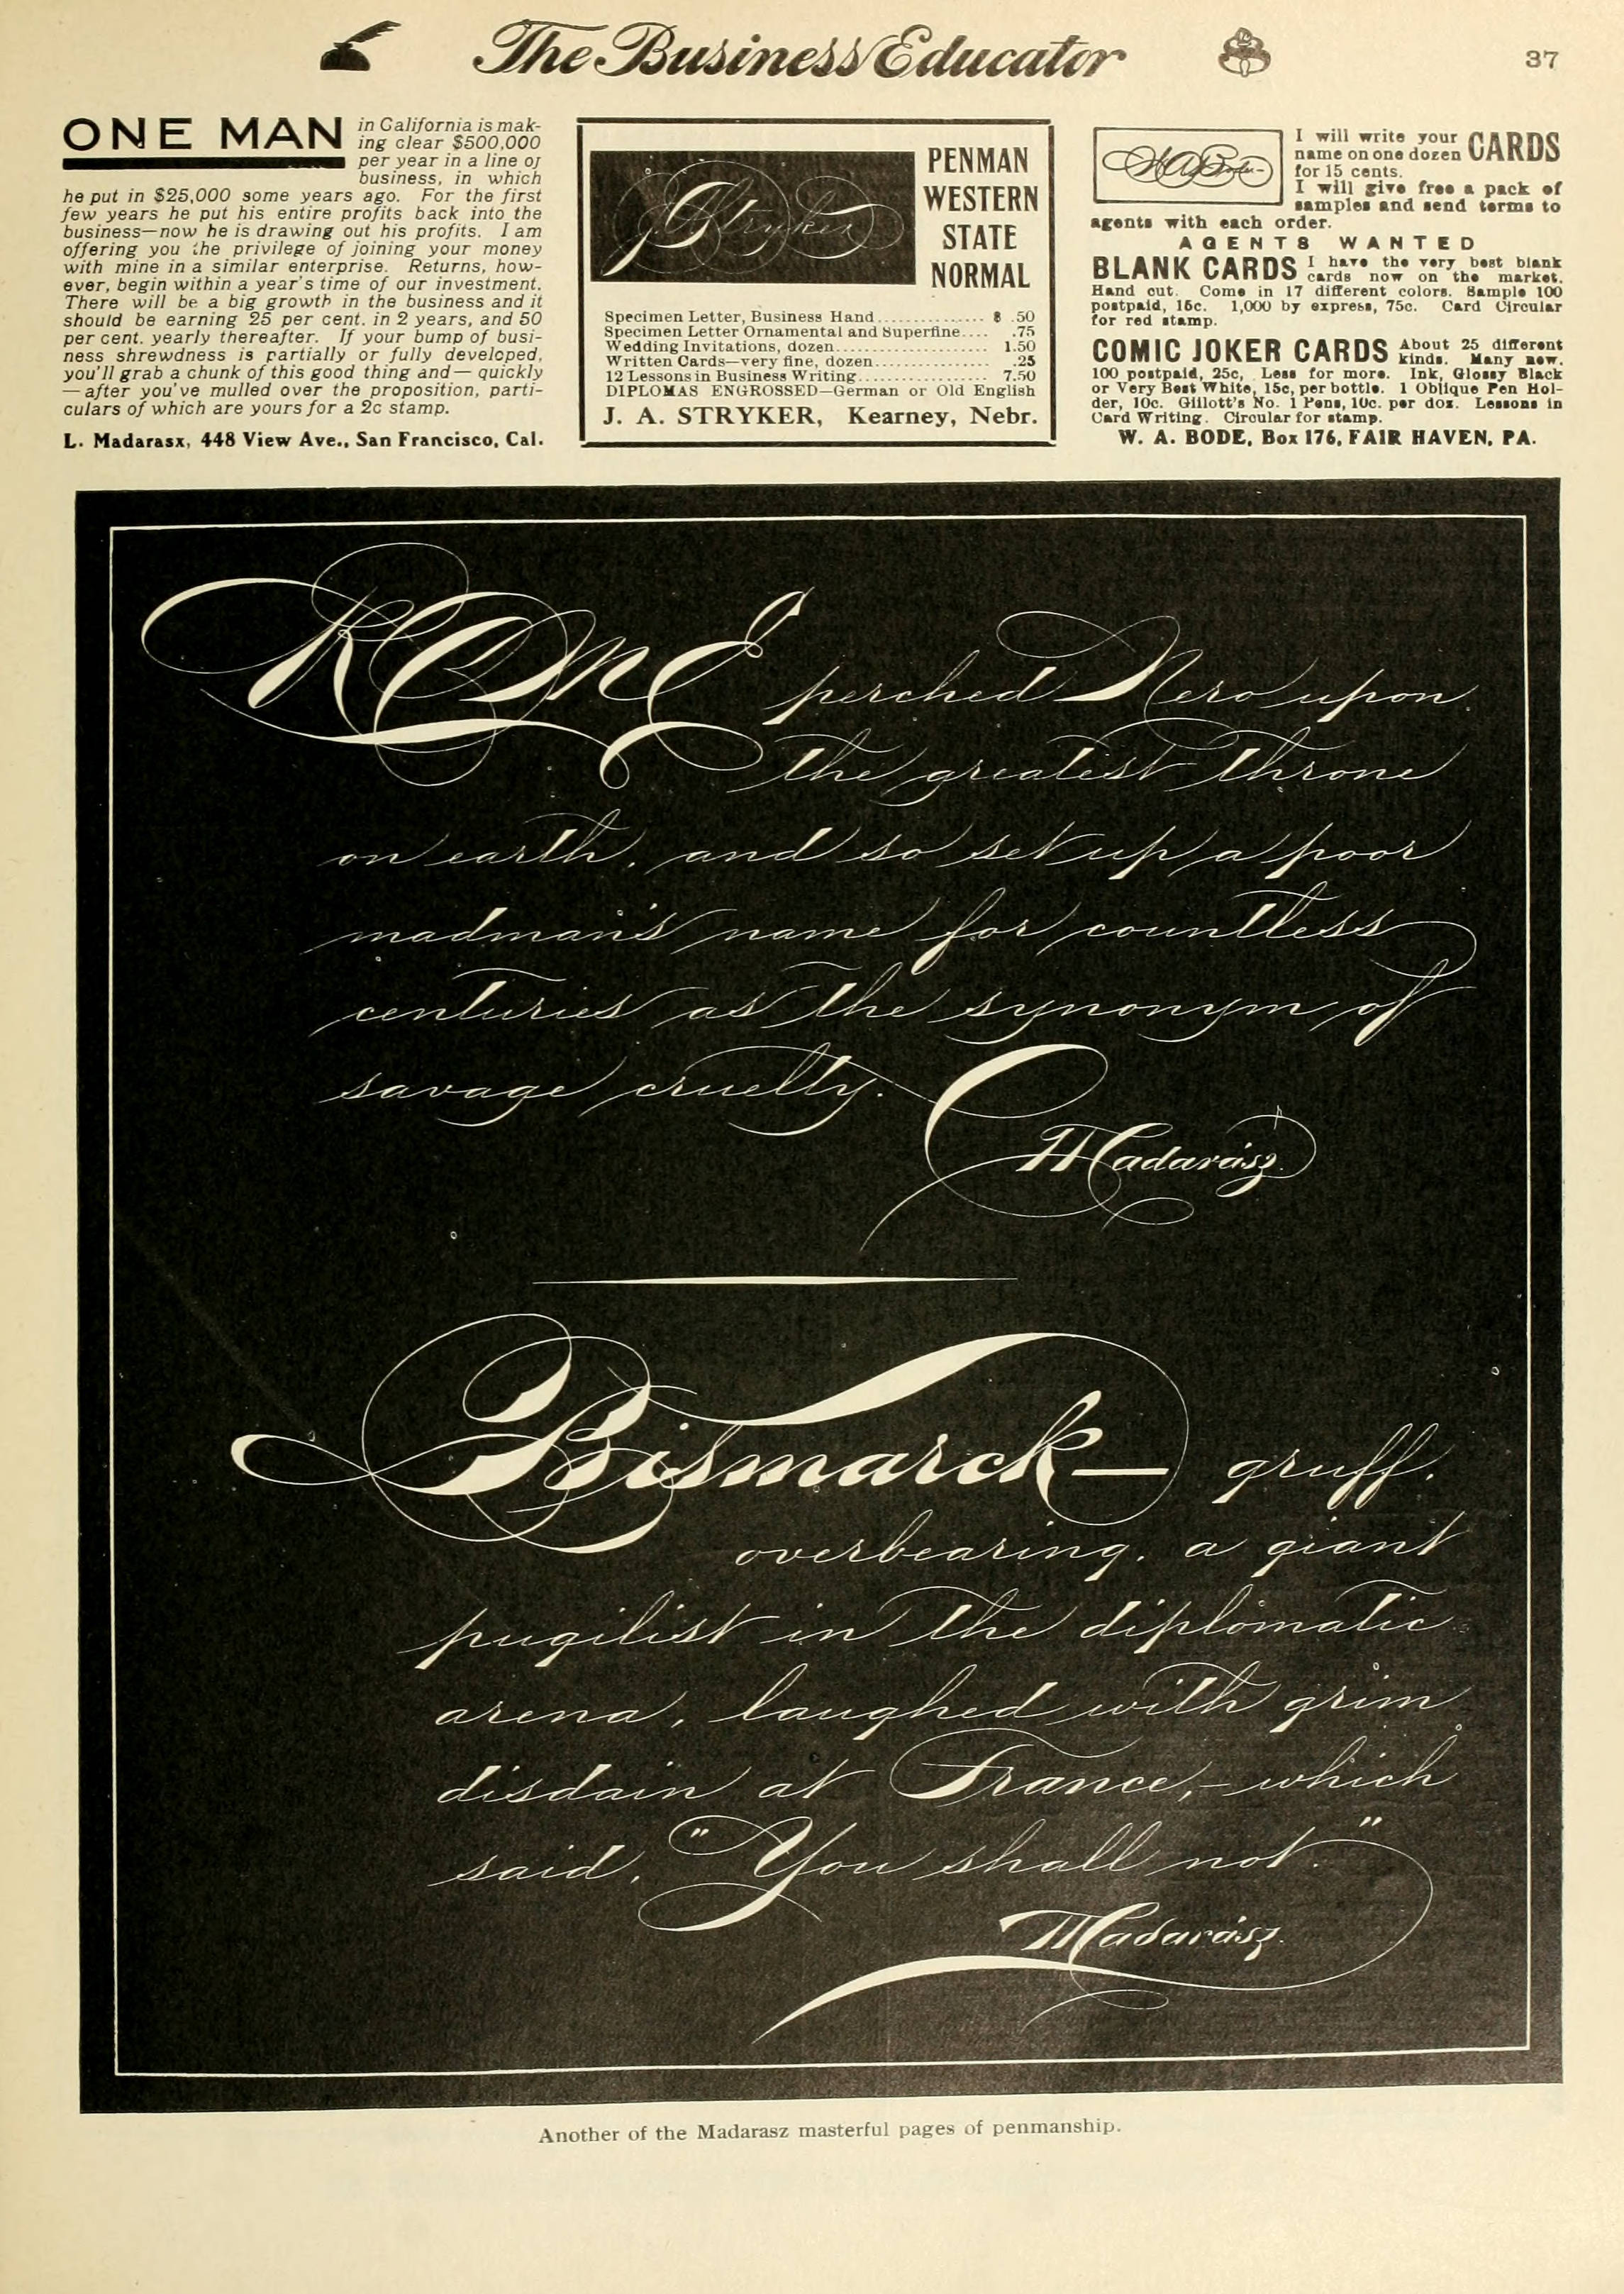 The Business Educator
37
ONE MAN in California is mak-
ing clear $500,000
per year in a line of
business, in which
he put in $25,000 some years ago. For the first
few years he put his entire profits back into the
business—now he is drawing out his profits. I am
offering you the privilege of joining your money
with mine in a similar enterprise. Returns, how-
ever, begin within a year's time of our investment.
There will be a big growth in the business and it
should be earning 25 per cent. in 2 years, and 50
per cent. yearly thereafter. If your bump of busi-
ness shrewdness is partially or fully developed,
you'll grab a chunk of this good thing and— quickly
—after you've mulled over the proposition, parti-
culars of which are yours for a 2c stamp.
L. Madarasx, 448 View Ave., San Francisco, Cal.
J A Stryker
PENMAN
WESTERN
STATE
NORMAL
Specimen Letter, Business Hand.............. $ .50
Specimen Letter Ornamental and Superfine.... .75
Wedding Invitations, dozen.................... 1.50
Written Cards—very fine, dozen............... .25
12 Lessons in Business Writing................. 7.50
DIPLOMAS ENGROSSED—German or Old English
J. A. STRYKER, Kearney, Nebr.
W A Bode
I will write your CARDS
name on one dozen
for 15 cents.
I will give free a pack of
samples and send terms to
agents with each order.
AGENTS WANTED
BLANK CARDS I have the very best blank
cards now on the market.
Hand cut. Come in 17 different colors. Sample 100
postpaid, 15c. 1,000 by express, 75c. Card Circular
for red stamp.
COMIC JOKER CARDS About 25 different
kinds. Many new.
100 postpaid, 25c, Less for more. Ink, Glossy Black
or Very Best White, 15c, per bottle. 1 Oblique Pen Hol-
der, 10c. Gillott's No. 1 Pens, 10c. per doz. Lessons in
Card Writing. Circular for stamp.
W. A. BODE, Box 176, FAIR HAVEN, PA.
ROME perched Nero upon
the greatest throne
on earth, and so set up a poor
madman's name for countless
centuries as the synonym of
savage cruelty.
Madarász.
Bismarck— gruff,
overbearing, a giant
pugilist in the diplomatic
arena, laughed with grim
disdain at France,—which
said, "You shall not."
Madarász.
Another of the Madarasz masterful pages of penmanship.